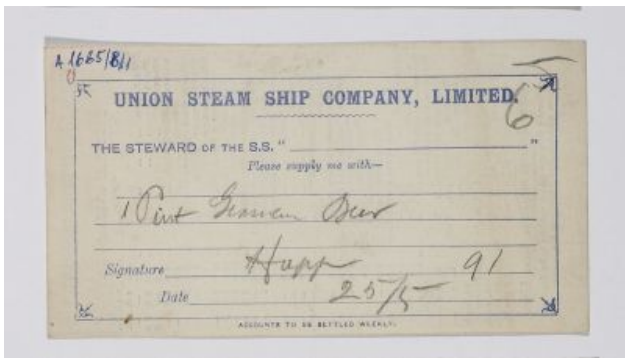 A1665/8/1
6
UNION STEAM SHIP COMPANY, LIMITED.
THE STEWARD OF THE S.S. " "
Please supply me with—
1 Pint German Beer
Signature 91
Date 25/5
ACCOUNTS TO BE SETTLED WEEKLY.